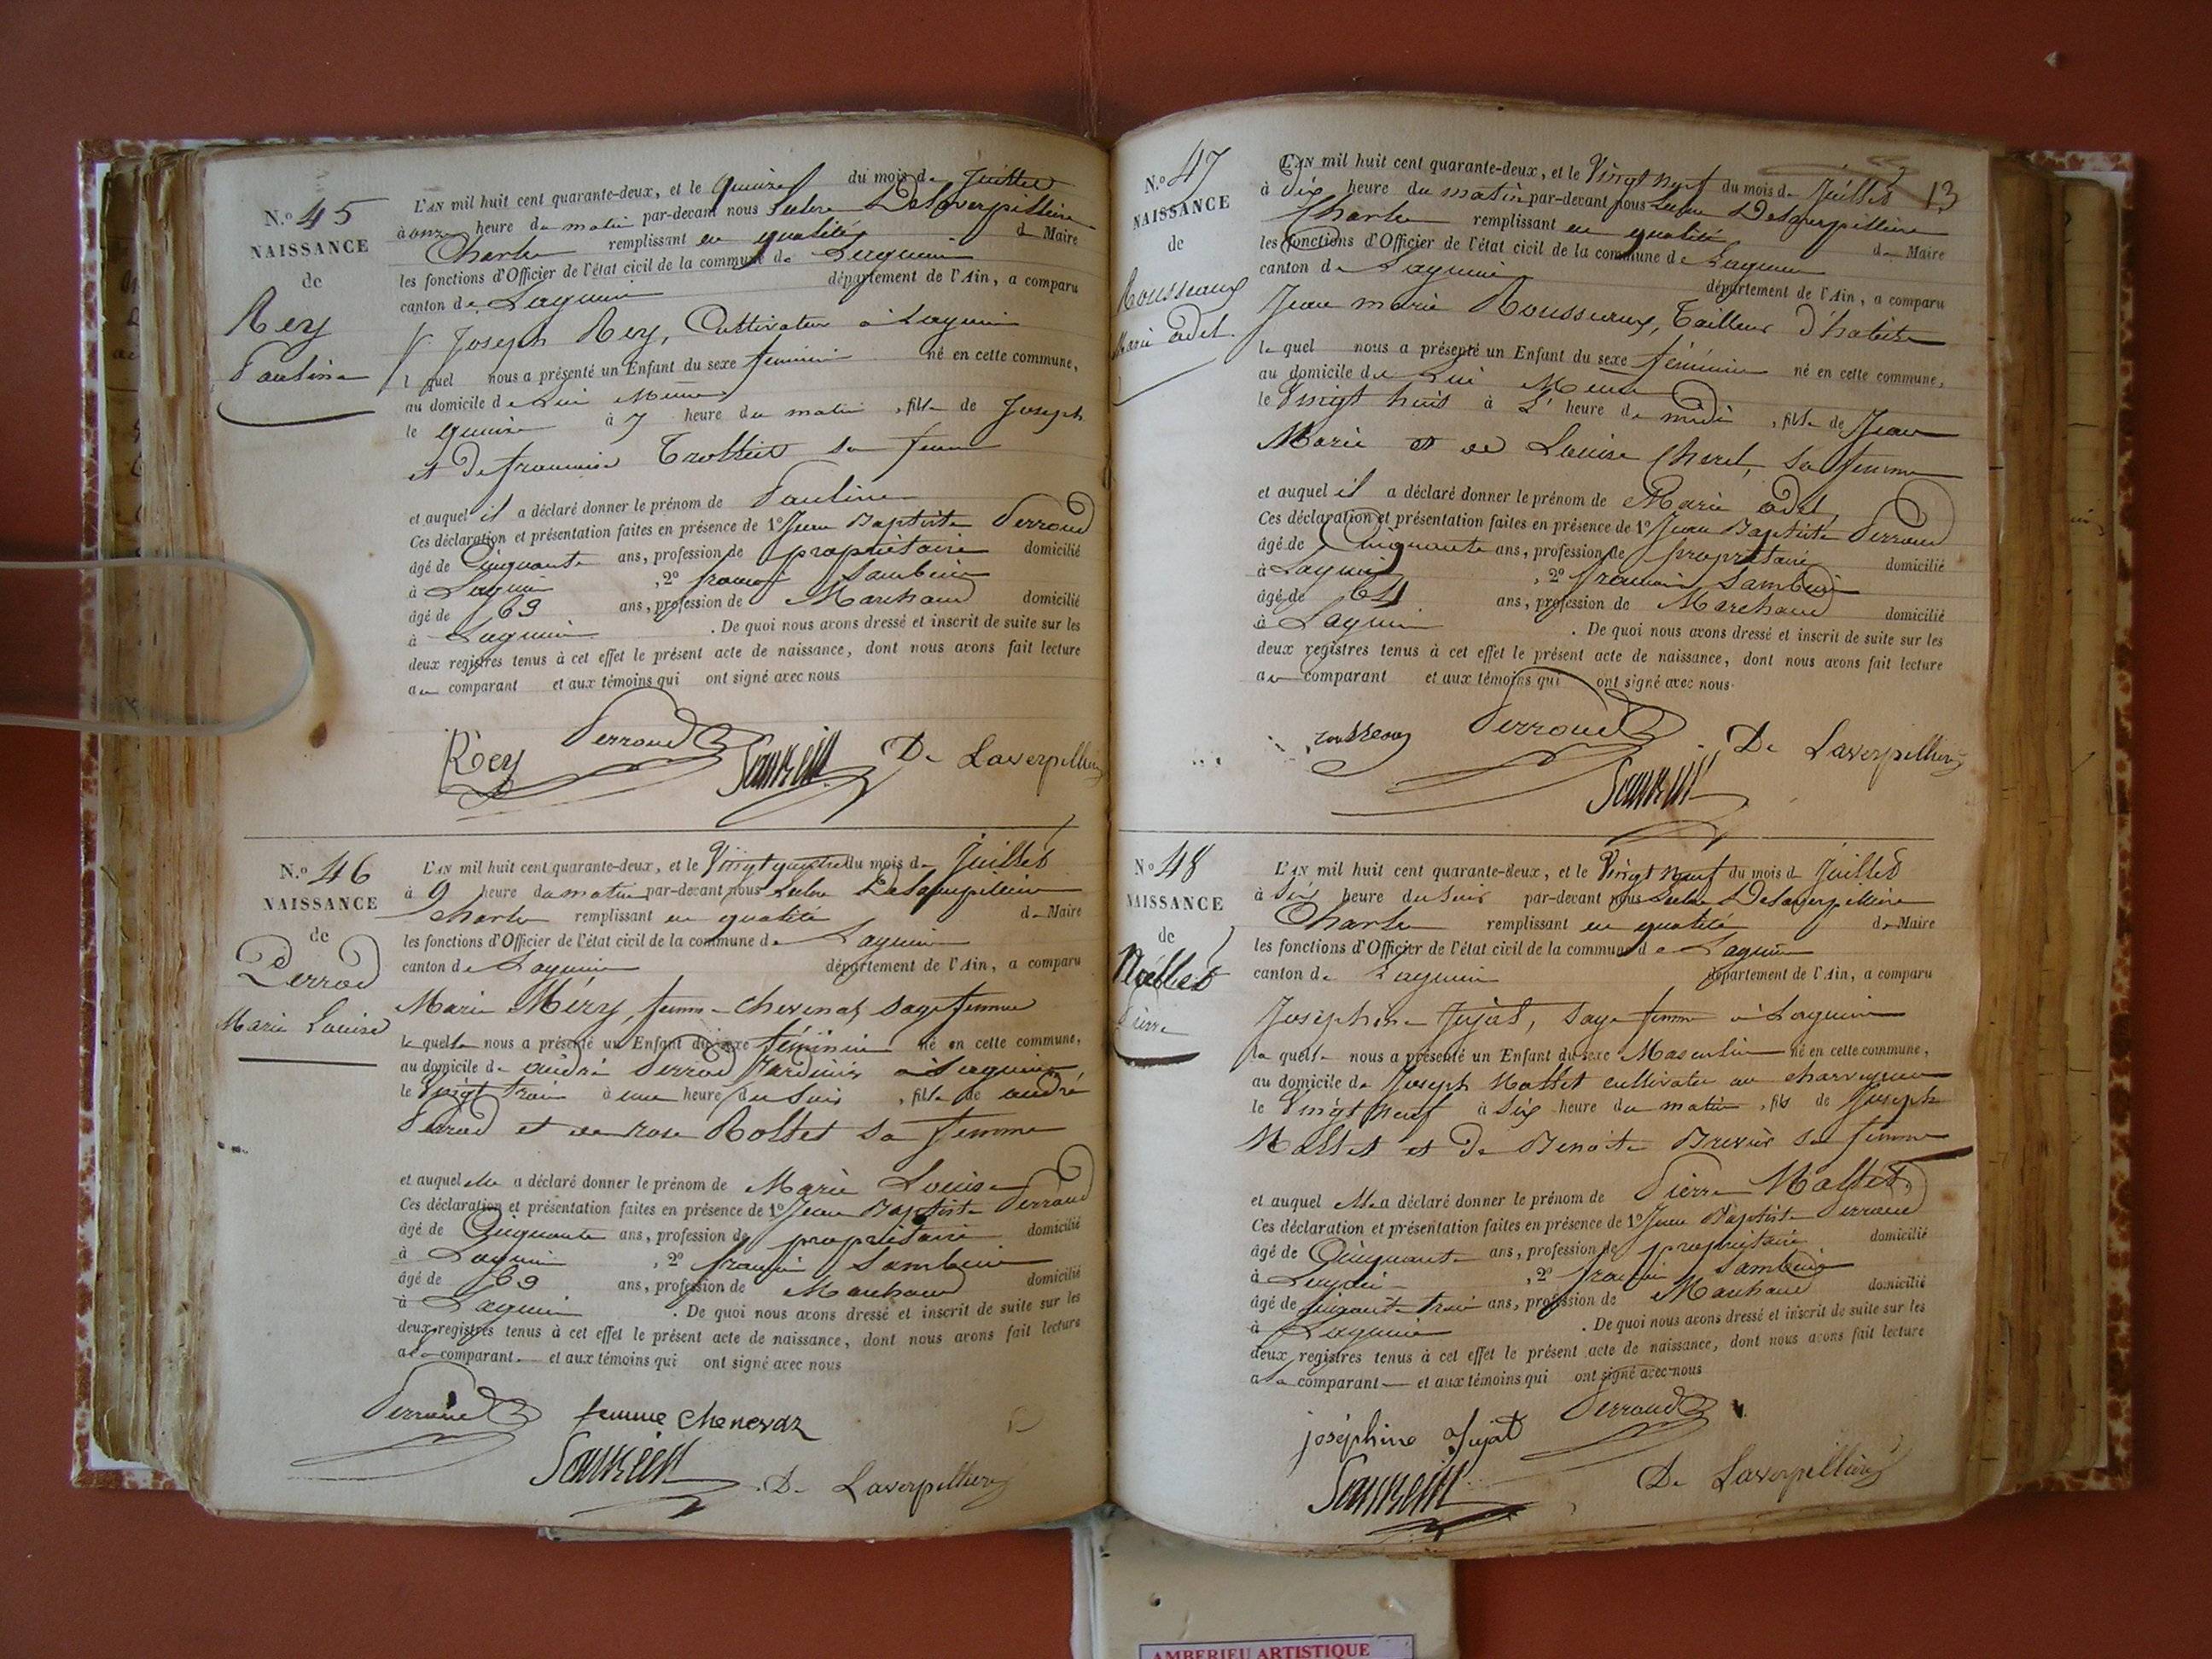 N.º 45
NAISSANCE
de
Rey
Pauline
L'AN mil huit cent quarante-deux, et le quinze du mois de Juillet
à onze heure du matin par-devant nous Delaverpillière
Charles remplissant en qualité de Maire
les fonctions d'Officier de l'état civil de la commune de Lagnieu
canton de Lagnieu département de l'Ain, a comparu
Joseph Rey, Cultivateur à Lagnieu
l quel nous a présenté un Enfant du sexe féminin né en cette commune,
au domicile de Lui Même
le quinze à 7 heure du matin, fille de Joseph
et de françoise Trolliet sa femme
et auquel il a déclaré donner le prénom de Pauline
Ces déclaration et présentation faites en présence de 1º Jean Baptiste Perroud
âgé de Cinquante ans, profession de propriétaire domicilié
à Lagnieu, 2º françois Sambein
âgé de 69 ans, profession de Marchand domicilié
à Lagnieu. De quoi nous avons dressé et inscrit de suite sur les
deux registres tenus à cet effet le présent acte de naissance, dont nous avons fait lecture
au comparant et aux témoins qui ont signé avec nous
Rey Perroud De Laverpillière
N.º 46
NAISSANCE
de
Perrod
Marie Louise
L'AN mil huit cent quarante-deux, et le Vingt quatre du mois de Juillet
à 9 heure du matin par-devant nous Delaverpillière
Charles remplissant en qualité de Maire
les fonctions d'Officier de l'état civil de la commune de Lagnieu
canton de Lagnieu département de l'Ain, a comparu
Marie Méry, femme Chevenat, sage femme
la quelle nous a présenté un Enfant du sexe féminin né en cette commune,
au domicile de andré Perrod Jardinier à Lagnieu
le Vingt trois à une heure du Soir, fille de andré
Perrod et de rose Rollet sa femme
et auquel elle a déclaré donner le prénom de Marie Louise
Ces déclaration et présentation faites en présence de 1º Jean Baptiste Perroud
âgé de Cinquante ans, profession de propriétaire domicilié
à Lagnieu, 2º françois Sambein
âgé de 69 ans, profession de Marchand domicilié
à Lagnieu. De quoi nous avons dressé et inscrit de suite sur les
deux registres tenus à cet effet le présent acte de naissance, dont nous avons fait lecture
a la comparante et aux témoins qui ont signé avec nous
Perroud femme Chenevaz
De Laverpillière
13
N.º 47
NAISSANCE
de
Rousseaux
Marie adel
L'AN mil huit cent quarante-deux, et le Vingt neuf du mois de Juillet
à dix heure du matin par-devant nous Delaverpillière
Charles remplissant en qualité de Maire
les fonctions d'Officier de l'état civil de la commune de Lagnieu
canton de Lagnieu département de l'Ain, a comparu
Jean marie Rousseaux, Tailleur d'habits
le quel nous a présenté un Enfant du sexe féminin né en cette commune,
au domicile de Lui Même
le Vingt huit à L' heure de midi, fille de Jean
Marie et de Louise Charel, sa femme
et auquel il a déclaré donner le prénom de Marie adel
Ces déclaration et présentation faites en présence de 1º Jean Baptiste Perroud
âgé de Cinquante ans, profession de propriétaire domicilié
à Lagnieu, 2º françois Sambein
âgé de ans, profession de Marchand domicilié
à Lagnieu. De quoi nous avons dressé et inscrit de suite sur les
deux registres tenus à cet effet le présent acte de naissance, dont nous avons fait lecture
au comparant et aux témoins qui ont signé avec nous
Perroud De Laverpillière
N.º 48
NAISSANCE
de
Mollet
Pierre
L'AN mil huit cent quarante-deux, et le Vingt neuf du mois d Juillet
à Six heure du Soir par-devant nous Delaverpillière
Charles remplissant en qualité de Maire
les fonctions d'Officier de l'état civil de la commune de Lagnieu
canton de Lagnieu département de l'Ain, a comparu
Joséphine Jujat, sage femme à Lagnieu
la quelle nous a présenté un Enfant du sexe Masculin né en cette commune,
au domicile de Joseph Mollet cultivateur au
le Vingt neuf à Six heure du matin, fils de Joseph
Mollet et de Benoite sa femme
et auquel elle a déclaré donner le prénom de Pierre Mollet
Ces déclaration et présentation faites en présence de 1º Jean Baptiste Perroud
âgé de Cinquante ans, profession de propriétaire domicilié
à Lagnieu, 2º françois Sambein
âgé de ans, profession de Marchand domicilié
à Lagnieu. De quoi nous avons dressé et inscrit de suite sur les
deux registres tenus à cet effet le présent acte de naissance, dont nous avons fait lecture
a la comparante et aux témoins qui ont signé avec nous
joséphine Jujat Perroud
De Laverpillière
AMBERIEU ARTISTIQUE